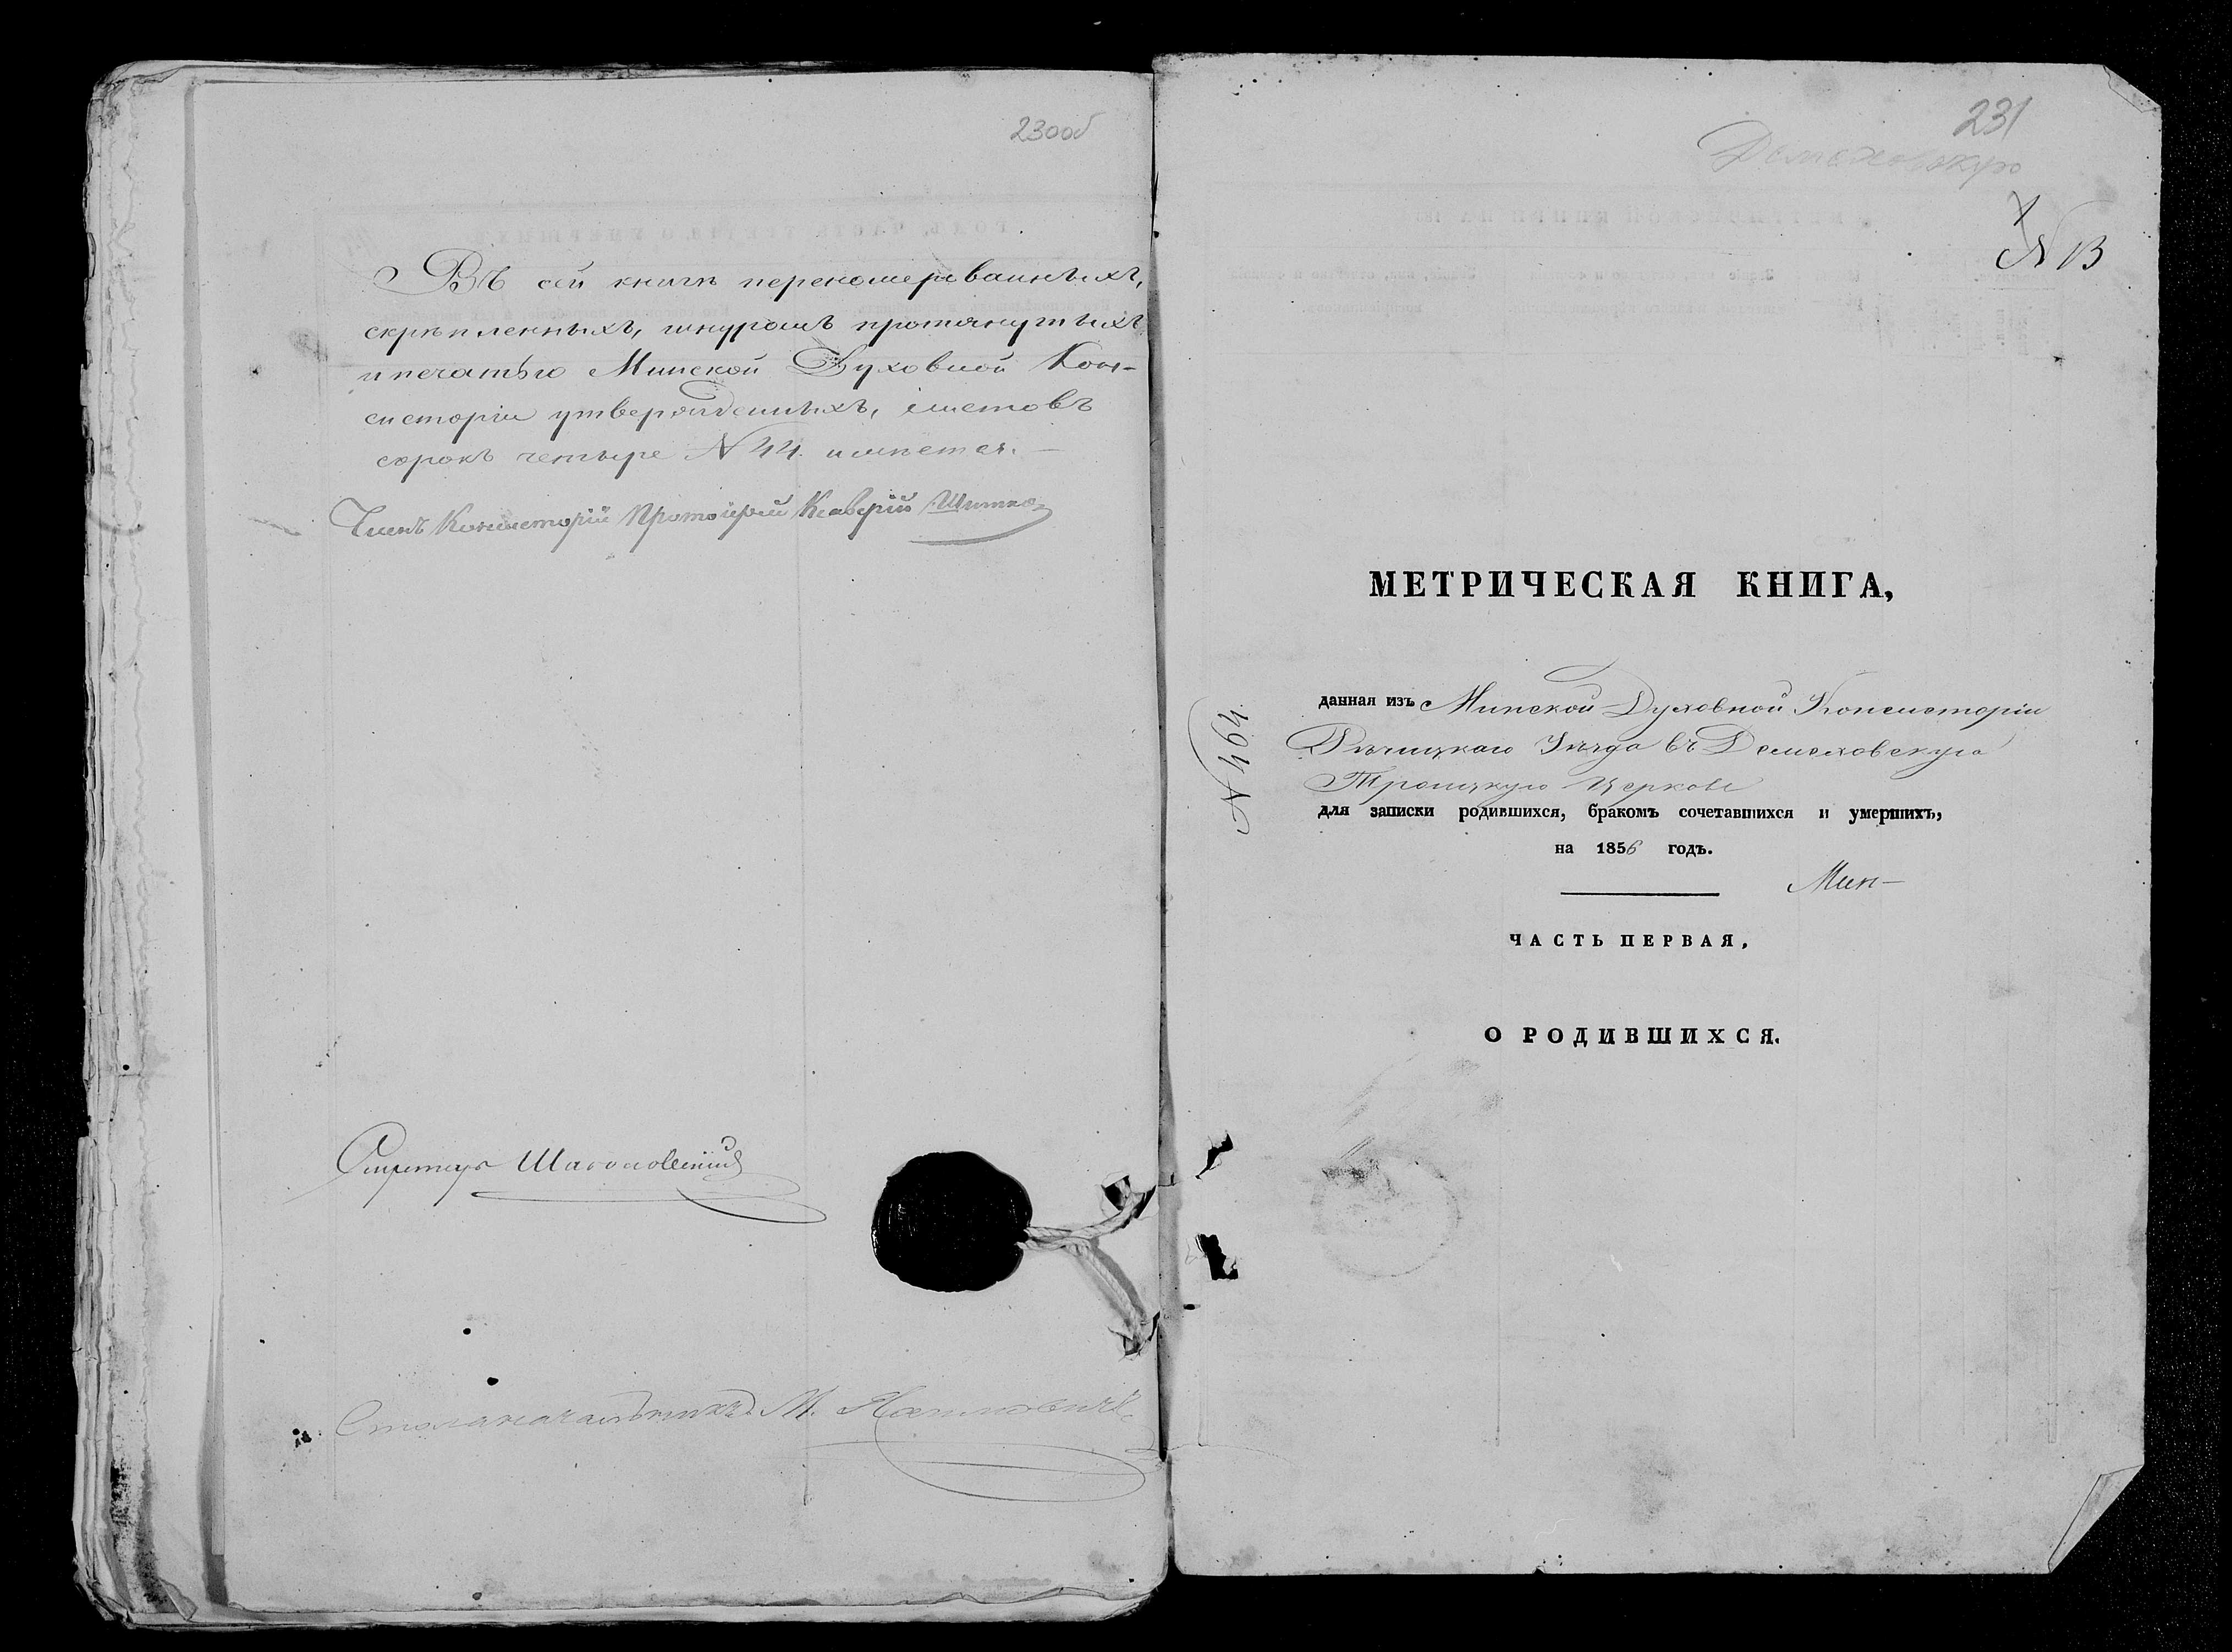 230об
Въ сей книгѣ переномерованныхъ,
скрѣпленныхъ, шнуромъ протянутыхъ
и печатью Минской Духовной Кон-
систоріи утвержденныхъ, листовъ
сорокъ четыре N 44. имѣется.—
Членъ Консисторіи Протоіерей Ксаверій
Секретарь
Столоначальникъ М.
231
Демеховскую
N 13
МЕТРИЧЕСКАЯ КНИГА,
данная изъ Минской Духовной Консисторіи
Рѣчицкаго Уѣзда въ Демеховскую
Троицкую Церковь
для записки родившихся, бракомъ сочетавшихся и умершихъ,
на 1856 годъ.
Мин-
ЧАСТЬ ПЕРВАЯ,
О РОДИВШИХСЯ.
N 494